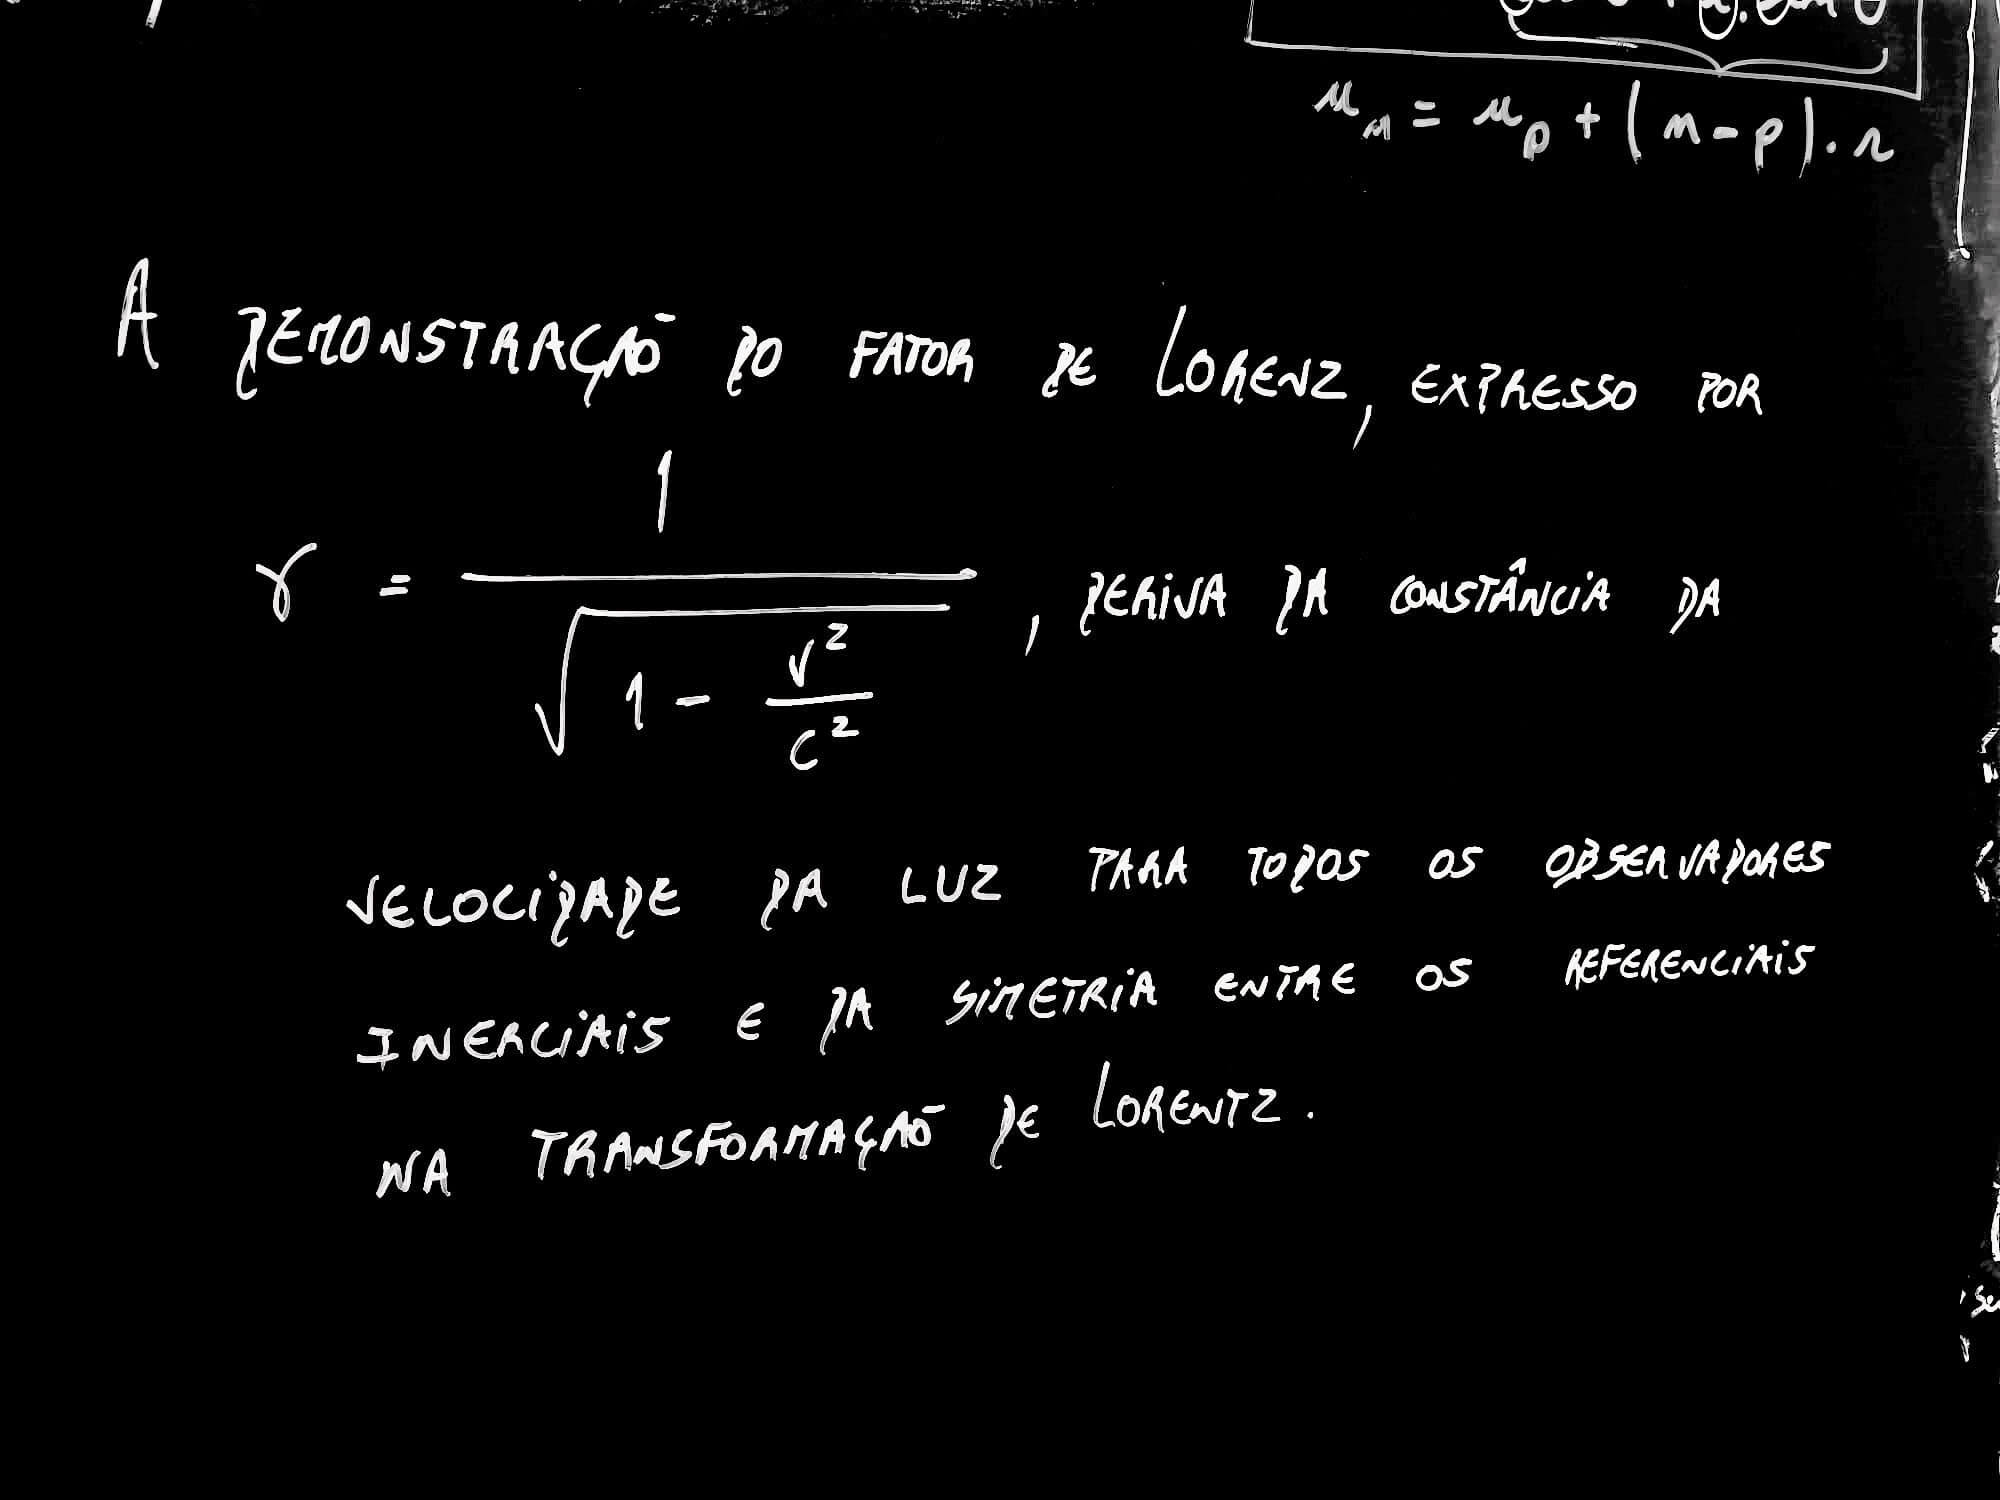 u_n = u_p + (n-p).r
A DEMONSTRAÇÃO DO FATOR DE LORENZ, EXPRESSO POR
γ = 1 / √(1 - v²/c²), DERIVA DA CONSTÂNCIA DA
VELOCIDADE DA LUZ PARA TODOS OS OBSERVADORES
INERCIAIS E DA SIMETRIA ENTRE OS REFERENCIAIS
NA TRANSFORMAÇÃO DE LORENTZ.